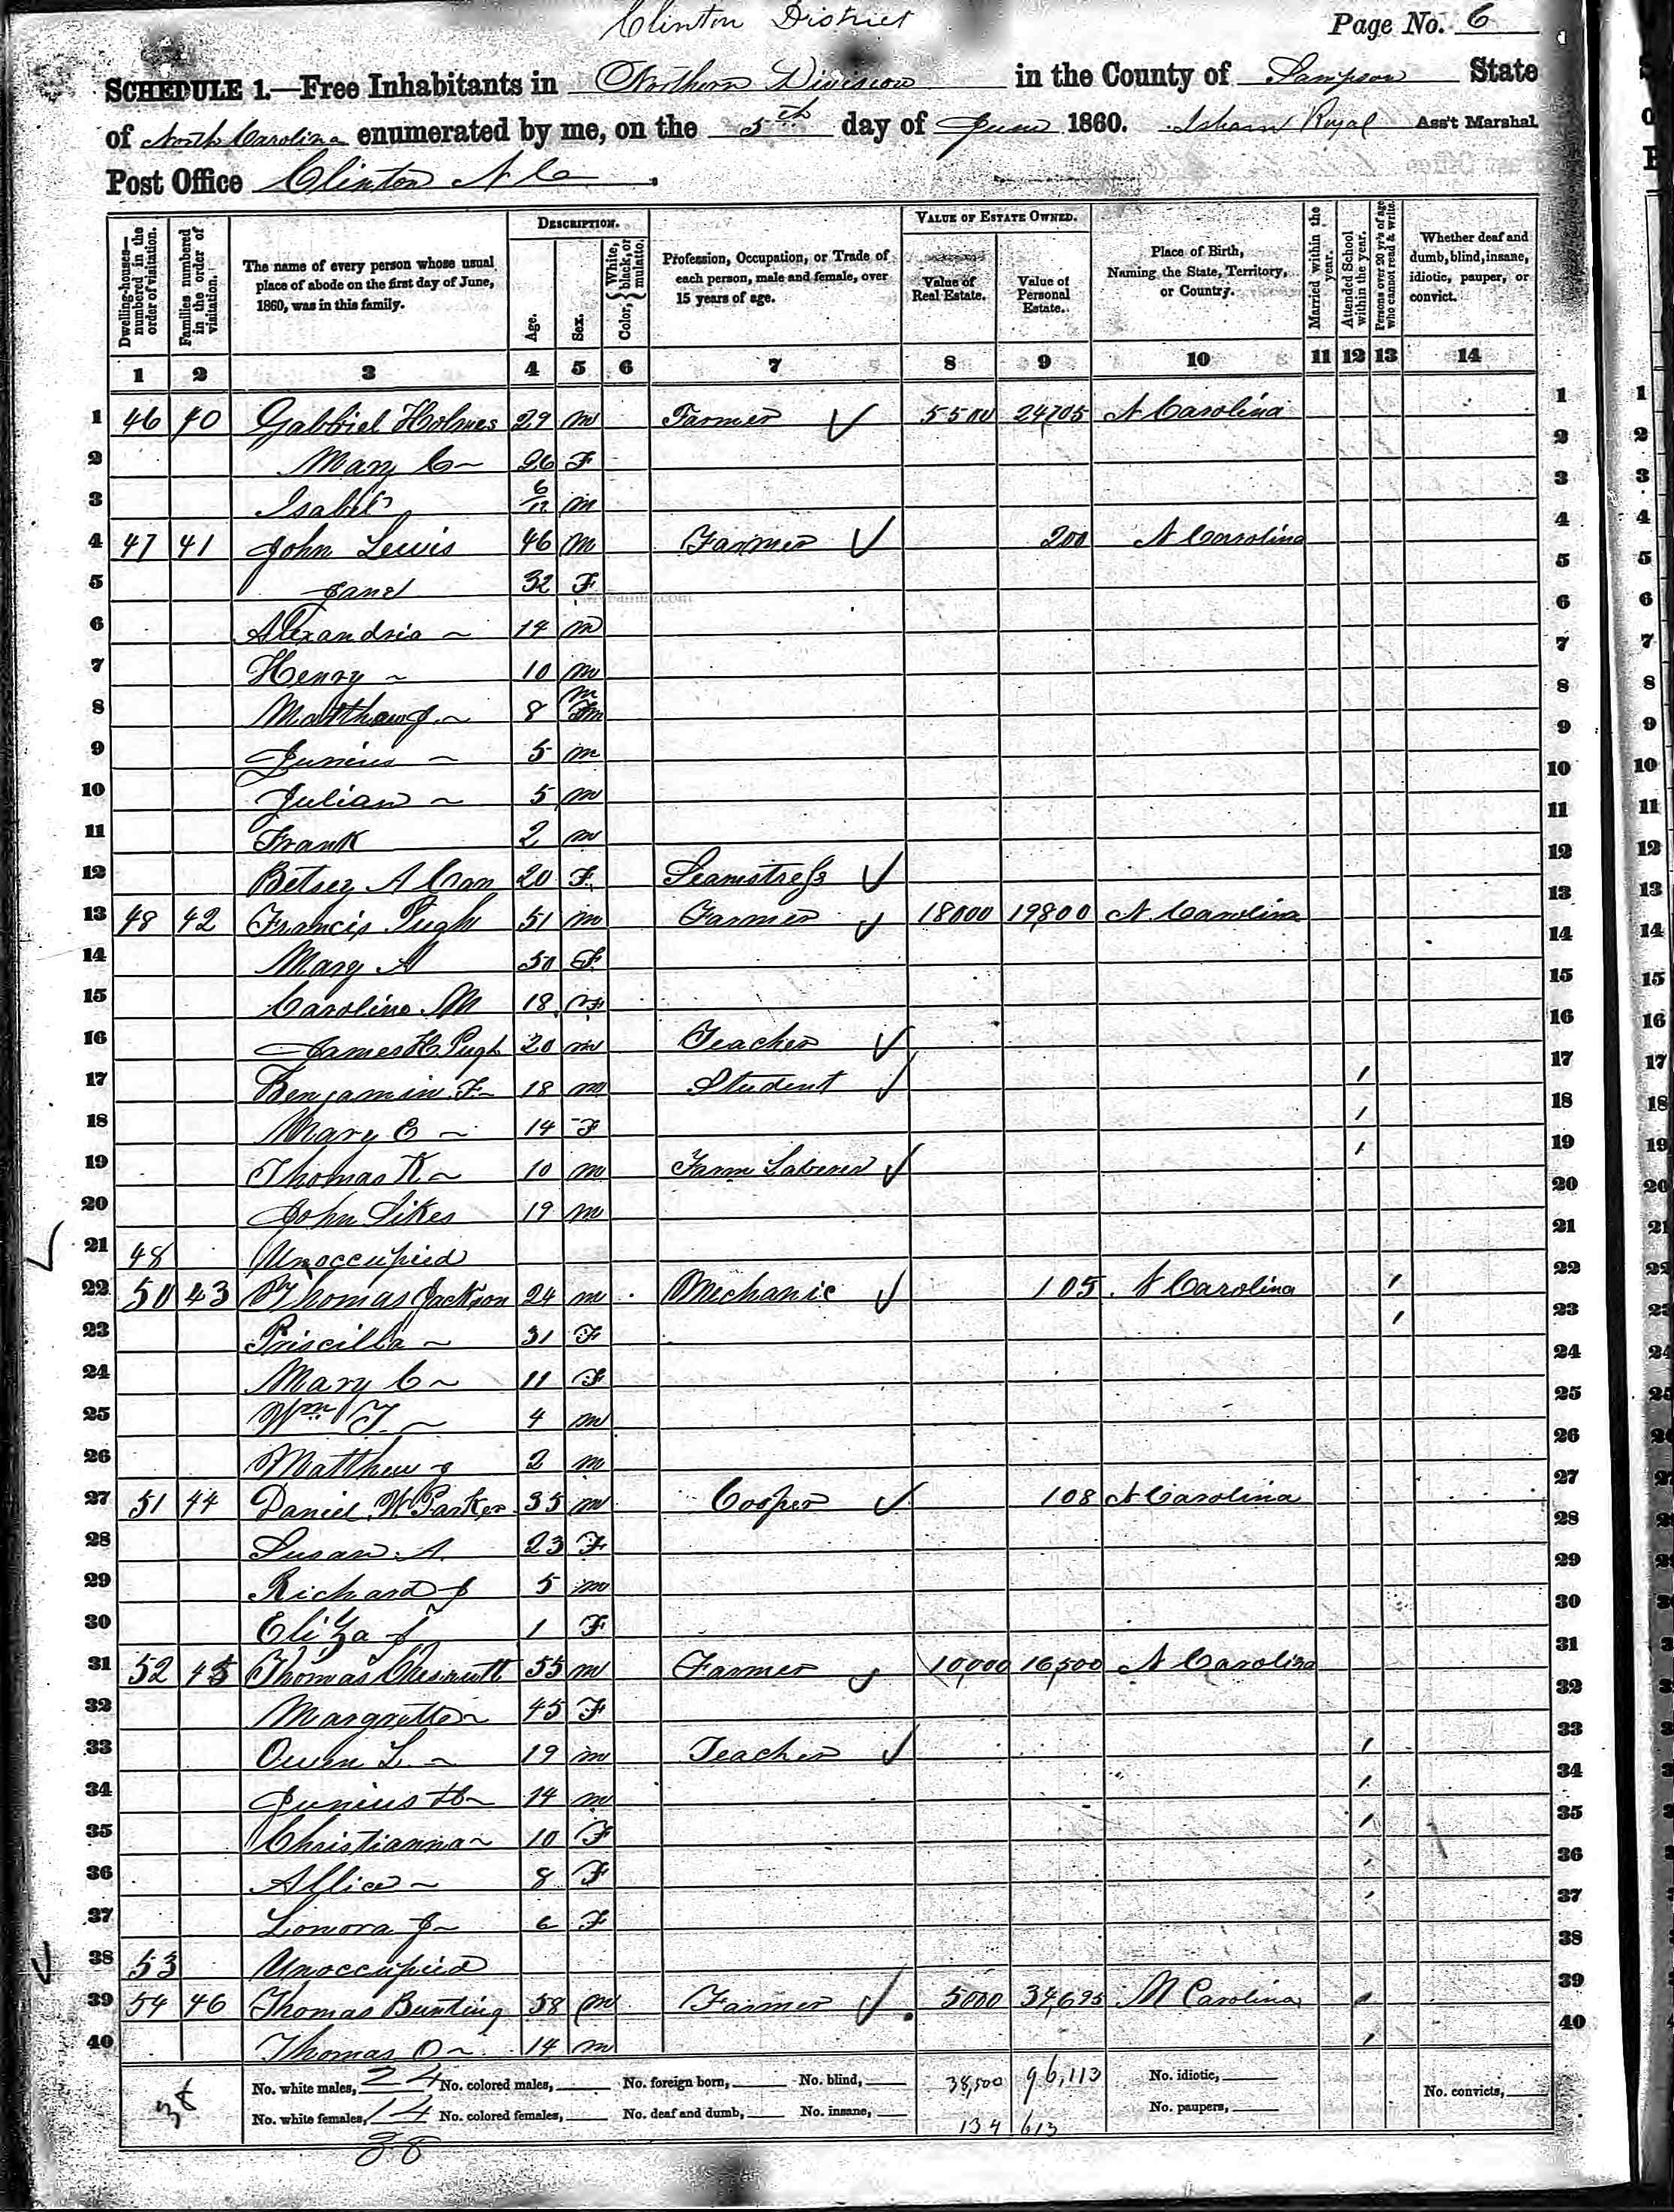 Clinton District
Page No. 6
SCHEDULE 1.—Free Inhabitants in Northern Division in the County of Sampson State
of North Carolina enumerated by me, on the 5th day of June 1860. Isham Royal Ass't Marshal.
Post Office Clinton N Ca.
Dwelling-houses—numbered in the order of visitation.
Families numbered in the order of visitation.
The name of every person whose usual place of abode on the first day of June, 1860, was in this family.
DESCRIPTION.
Age.
Sex.
Color, { White, black, or mulatto.
Profession, Occupation, or Trade of each person, male and female, over 15 years of age.
VALUE OF ESTATE OWNED.
Value of Real Estate.
Value of Personal Estate.
Place of Birth, Naming the State, Territory, or Country.
Married within the year.
Attended School within the year.
Persons over 20 y'rs of age who cannot read & write.
Whether deaf and dumb, blind, insane, idiotic, pauper, or convict.
1 2 3 4 5 6 7 8 9 10 11 12 13 14
1 46 40 Gabbriel Holmes 29 m Farmer 5500 24,705 N Carolina 1
2 Mary C 26 F 2
3 Isabel 6/12 m 3
4 47 41 John Lewis 46 m Farmer 200 N Carolina 4
5 Jane 32 F 5
6 Alexandria 14 m 6
7 Henry 10 m 7
8 Matthew J. 8 m 8
9 Junius 5 m 9
10 Julian 5 m 10
11 Frank 2 m 11
12 Betsey A Can 20 F Seamstress 12
13 48 42 Francis Pugh 51 m Farmer 18000 19800 N. Carolina 13
14 Mary A 50 F 14
15 Caroline M 18 F 15
16 James H. Pugh 20 m Teacher 16
17 Benjamin F 18 m Student 17
18 Mary E 14 F 18
19 Thomas K 10 m Farm Laborer 19
20 John Sikes 19 m 20
21 48 Unoccupied 21
22 50 43 Thomas Jackson 24 m Mechanic 105 N Carolina 22
23 Priscilla 31 F 23
24 Mary C 11 F 24
25 Wm T. 4 m 25
26 Matthew J 2 m 26
27 51 44 Daniel W Parker 35 m Cooper 108 N Carolina 27
28 Susan A. 23 F 28
29 Richard J 5 m 29
30 Eliza J 1 F 30
31 52 45 Thomas Chesnutt 55 m Farmer 10,000 16,500 N Carolina 31
32 Margrette 45 F 32
33 Owen L. 19 m Teacher 33
34 Junius H 14 m 34
35 Christianna 10 F 35
36 Allice 8 F 36
37 Lonora J 6 F 37
38 53 Unoccupied 38
39 54 46 Thomas Bunting 58 m Farmer 5000 34,695 N Carolina 39
40 Thomas O 14 m 40
38
No. white males, 24 No. colored males, No. foreign born, No. blind, 38,500 96,113 No. idiotic,
No. white females, 14 No. colored females, No. deaf and dumb, No. insane, 134 613 No. paupers, No. convicts,
38